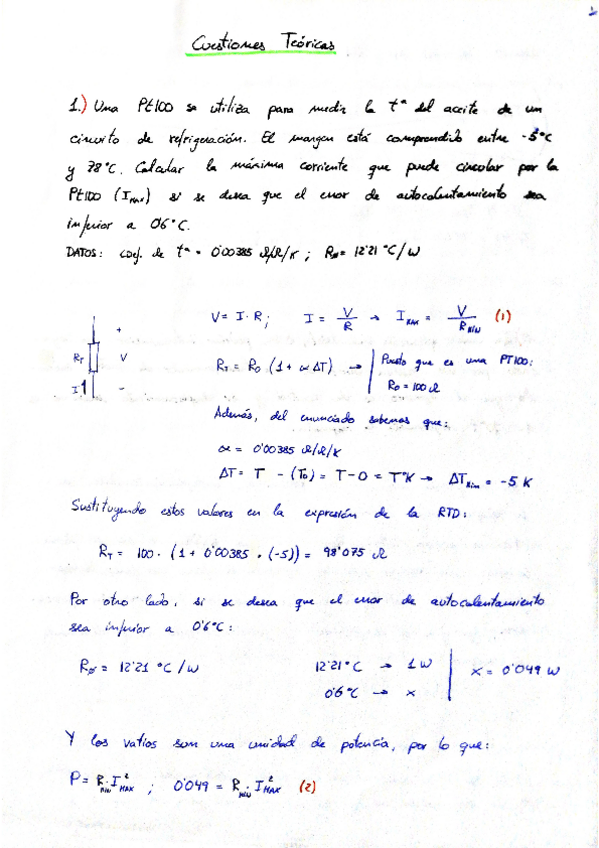 Cuestiones Teóricas
1.) Una Pt100 se utiliza para medir la tª del aceite de un
circuito de refrigeración. El margen está comprendido entre -5°C
y 78°C. Calcular la máxima corriente que puede circular por la
Pt100 (IMAX) si se desea que el error de autocalentamiento sea
inferior a 0'6°C.
DATOS: coef. de tª = 0'00385 Ω/Ω/K ; Rθ = 12'21 °C/W
V = I · R ; I = V/R → IMAX = V/RMIN (1)
RT
I
+
V
-
RT = R0 (1 + α ΔT) → Puesto que es una PT100:
R0 = 100 Ω
Además, del enunciado sabemos que:
α = 0'00385 Ω/Ω/K
ΔT = T - (T0) = T - 0 = T°K → ΔTMin = -5 K
Sustituyendo estos valores en la expresión de la RTD:
RT = 100 · (1 + 0'00385 · (-5)) = 98'075 Ω
Por otro lado, si se desea que el error de autocalentamiento
sea inferior a 0'6°C:
Rθ = 12'21 °C/W 12'21°C → 1W x = 0'049 W
0'6°C → x
Y los vatios son una unidad de potencia, por lo que:
P = RMIN · I²MAX ; 0'049 = RMIN · I²MAX (2)